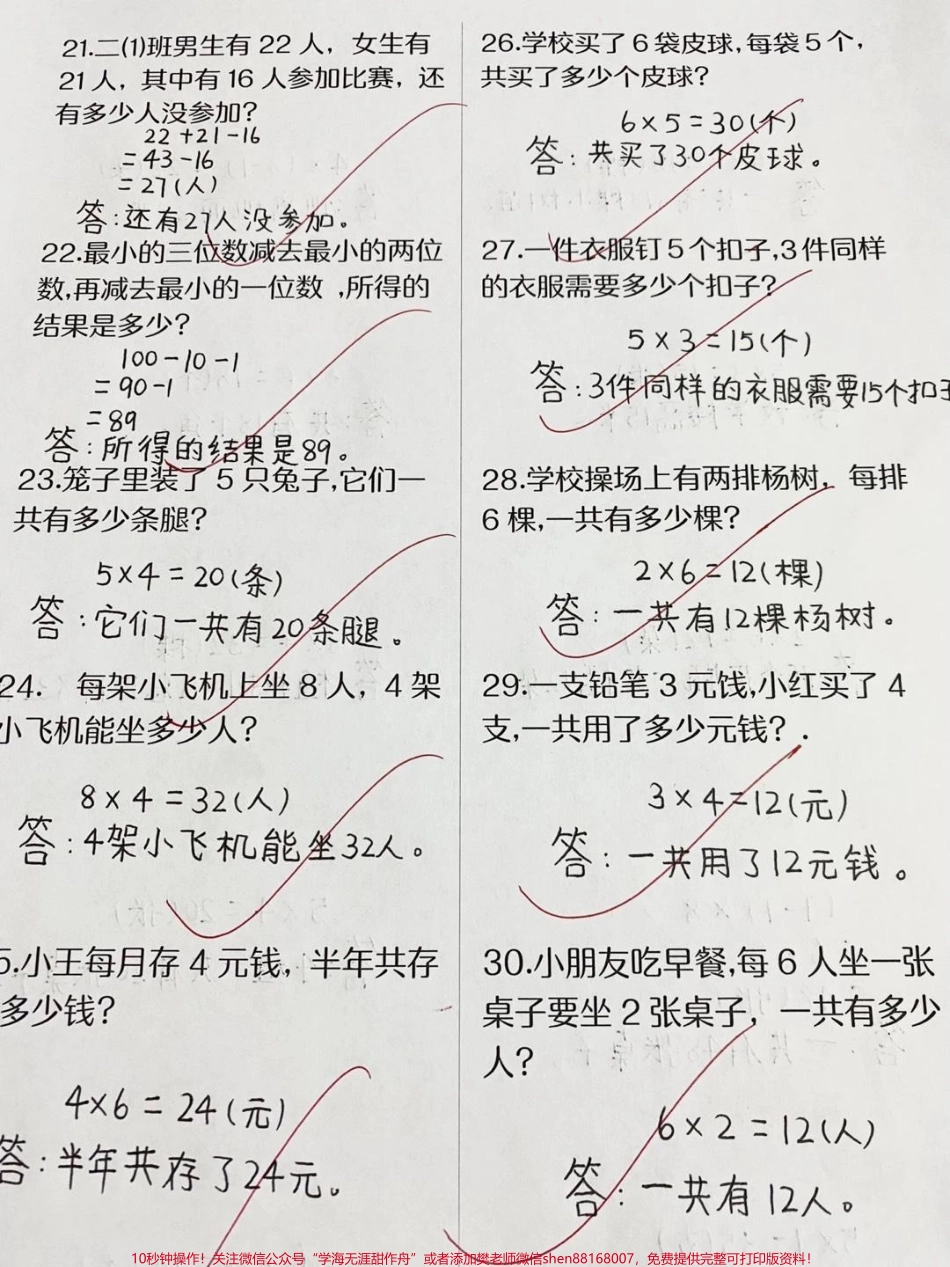 21.二(1)班男生有 22 人，女生有
21人，其中有 16 人参加比赛，还
有多少人没参加？
22+21-16
=43-16
=27(人)
答:还有27人没参加。
22.最小的三位数减去最小的两位
数,再减去最小的一位数 ,所得的
结果是多少？
100-10-1
=90-1
=89
答:所得的结果是89。
23.笼子里装了 5 只兔子,它们一
共有多少条腿？
5×4=20(条)
答:它们一共有20条腿。
24. 每架小飞机上坐 8 人，4 架
小飞机能坐多少人？
8×4=32(人)
答:4架小飞机能坐32人。
5.小王每月存 4 元钱，半年共存
多少钱？
4×6=24(元)
答:半年共存了24元。
26.学校买了 6 袋皮球,每袋 5 个，
共买了多少个皮球？
6×5=30(个)
答:共买了30个皮球。
27.一件衣服钉 5 个扣子,3 件同样
的衣服需要多少个扣子？
5×3=15(个)
答:3件同样的衣服需要15个扣子
28.学校操场上有两排杨树，每排
6 棵,一共有多少棵？
2×6=12(棵)
答:一共有12棵杨树。
29.一支铅笔 3 元饯,小红买了 4
支,一共用了多少元钱？.
3×4=12(元)
答:一共用了12元钱。
30.小朋友吃早餐,每 6 人坐一张
桌子要坐 2 张桌子，一共有多少
人？
6×2=12(人)
答:一共有12人。
10秒钟操作！关注微信公众号“学海无涯甜作舟”或者添加樊老师微信shen88168007，免费提供完整可打印版资料！